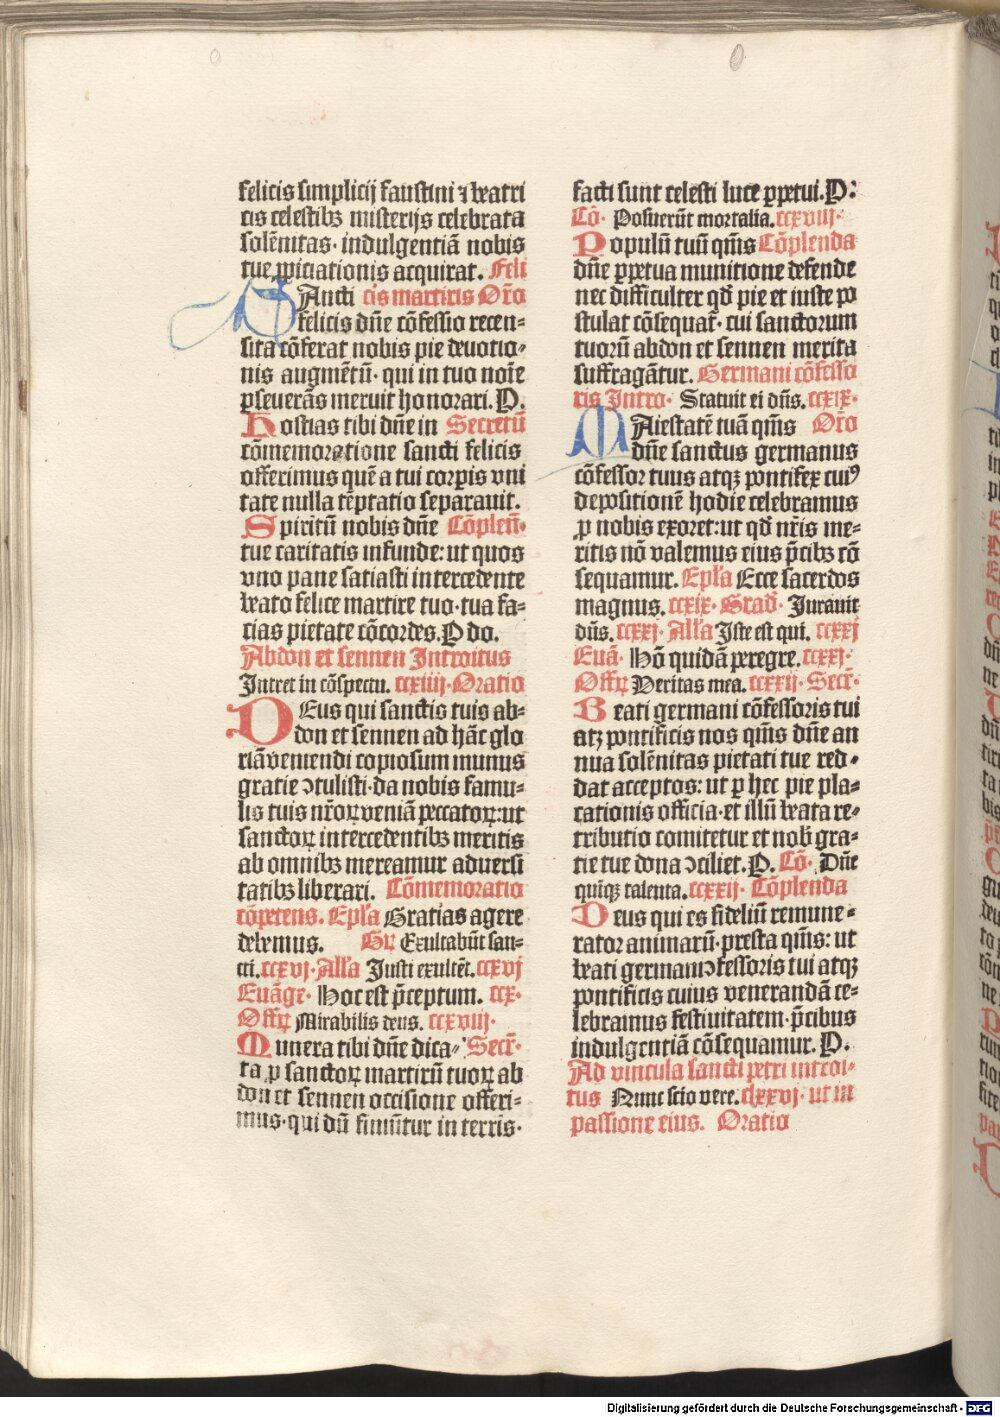 felicis simplicij faustini ⁊ beatri
cis celestibꝫ misterijs celebrata
solēnitas· indulgentiā nobis
tue ꝓpiciationis acquirat. Feli
SAncti cis martiris Or̄o
felicis dn̄e cōfessio recen-
sita cōferat nobis pie deuotio-
nis augmētū· qui in tuo noīe
ꝑseuerās meruit honorari. P.
Hostias tibi dn̄e in Secretū
cōmemoratione sancti felicis
offerimus quē a tui corꝑis vni
tate nulla tēptatio separauit.
Spiritū nobis dn̄e Cōplen̄·
tue caritatis infunde: ut quos
vno pane satiasti intercedente
beato felice martire tuo·tua fa-
cias pietate cōcordes. P do.
Abdon et sennen Introitus
Intret in cōspectu. ccxiiij·Oratio
DEus qui sanctis tuis ab-
don et sennen ad hāc glo
riā veniendi copiosum munus
gratie ↄtulisti·da nobis famu-
lis tuis nr̄oꝝ veniā peccatoꝝ:ut
sanctoꝝ intercedentibꝫ meritis
ab omnibꝫ mereamur aduersi
tatibꝫ liberari. Cōmemoratio
cōpetens. Epl̄a Gratias agere
debemus. Gꝝ Exultabūt san-
cti. ccxvj·All̄a Justi exultēt. ccxvj
Euāge· Hoc est p̄ceptum. ccx·
Offꝝ Mirabilis deus. ccxviij·
Munera tibi dn̄e dica- Secr̄·
ta ꝑ sanctoꝝ martirū tuoꝝ ab
don et sennen occisione offeri-
mus·qui dū finiūtur in terris·
facti sunt celesti luce ꝑpetui. P:
Cō· Posuerūt mortalia. ccxviij·
Populū tuū qm̄s Cōplenda
dn̄e ꝑpetua munitione defende
nec difficulter qd̄ pie et iuste po
stulat cōsequat̄· cui sanctorum
tuorū abdon et sennen merita
suffragātur. Germani cōfesso
ris Intro· Statuit ei dn̄s. ccxix·
MAiestatē tuā qm̄s Or̄o
dn̄e sanctus germanus
cōfessor tuus atqꝫ pontifex cuiꝰ
depositionē hodie celebramus
ꝓ nobis exoret: ut qd̄ nr̄is me-
ritis nō valemus eius p̄cibꝫ cō
sequamur. Epl̄a Ecce sacerdos
magnus. ccxix· Grad̄· Jurauit
dn̄s. ccxxj· All̄a Iste est qui. ccxxj
Euā· Hō quidā peregre. ccxxj·
Offꝝ Veritas mea. ccxxij· Secr̄·
Beati germani cōfessoris tui
atꝫ pontificis nos qm̄s dn̄e an
nua solēnitas pietati tue red-
dat acceptos: ut ꝑ hec pie pla-
cationis officia·et illū beata re-
tributio comitetur et nob̄ gra-
tie tue dona ↄciliet. P. Cō· Dn̄e
quīqꝫ talenta. ccxxij· Cōplenda
Deus qui es fideliū remune-
rator animarū·presta qm̄s: ut
beati germani ↄfessoris tui atqꝫ
pontificis cuius venerandā ce-
lebramus festiuitatem·p̄cibus
indulgentiā cōsequamur. P.
Ad vincula sancti petri introi-
tus Nunc scio vere. clxxvj· ut in
passione eius. Oratio
Digitalisierung gefördert durch die Deutsche Forschungsgemeinschaft - DFG